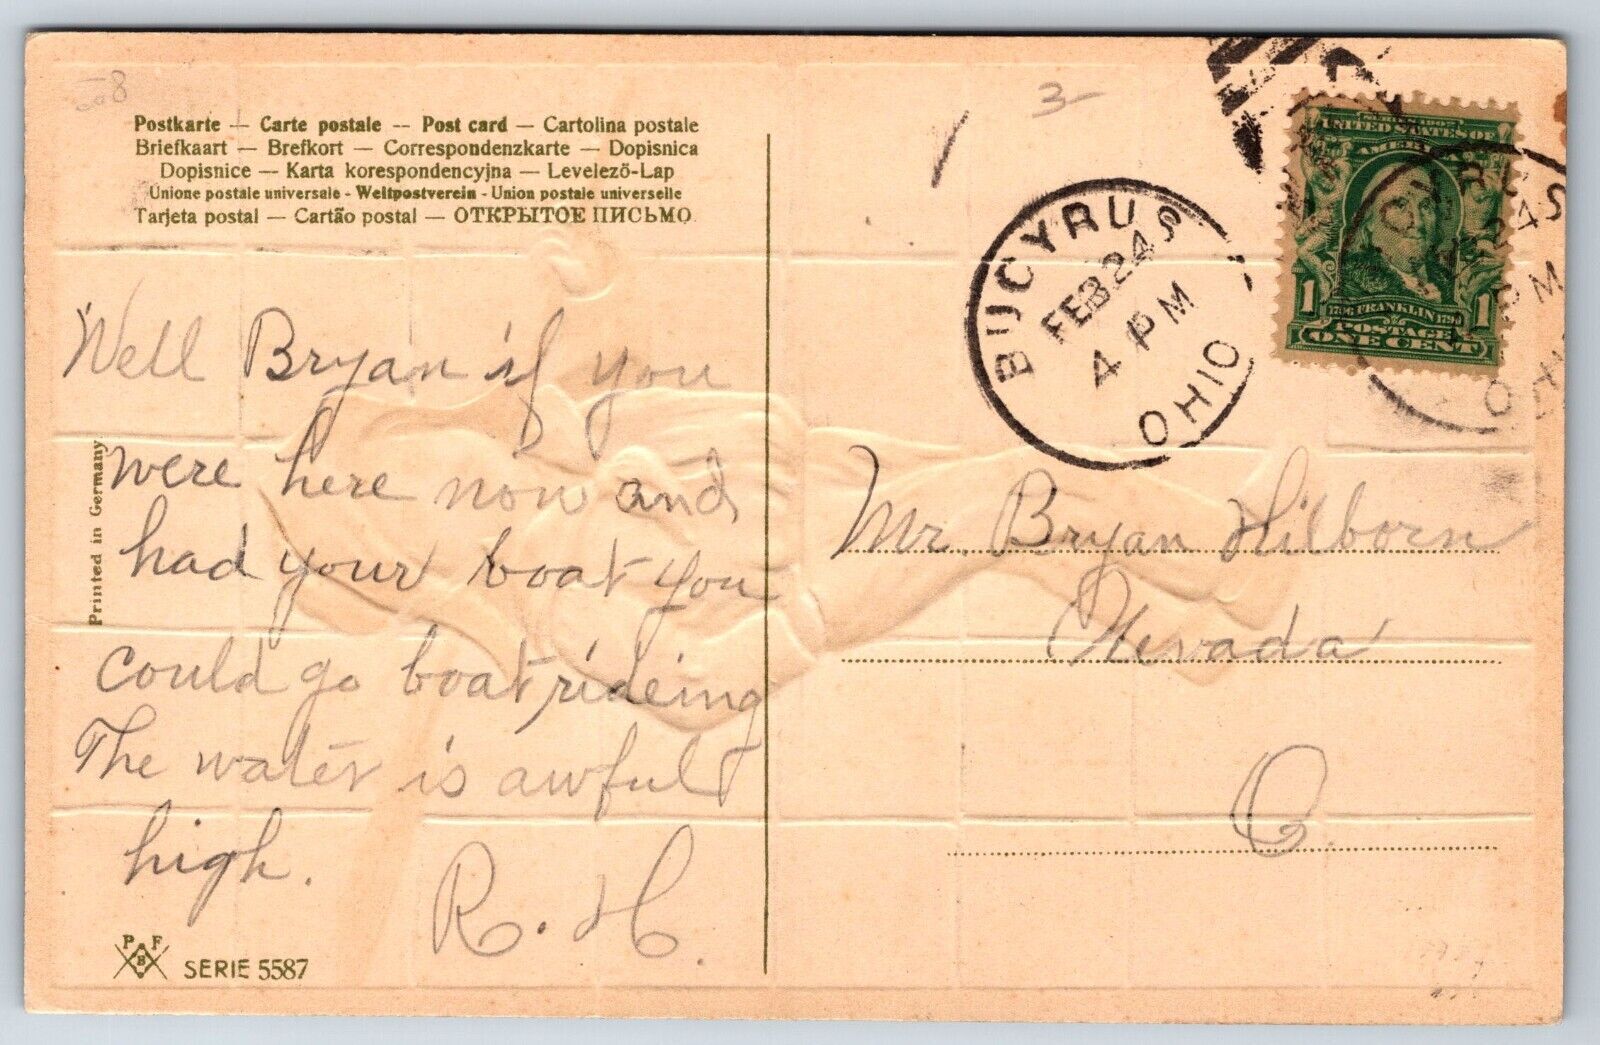 608
3-
Postkarte — Carte postale -- Post card — Cartolina postale
Briefkaart — Brefkort — Correspondenzkarte — Dopisnica
Dopisnice — Karta korespondencyjna — Levelező-Lap
Unione postale universale - Weltpostverein - Union postale universelle
Tarjeta postal — Cartão postal — ОТКРЫТОЕ ПИСЬМО.
BUCYRUS
FEB 24
4 PM
OHIO
UNITED STATES OF
AMERICA
1 FRANKLIN 1
POSTAGE
ONE CENT
Well Bryan if you
were here now and
had your boat you
could go boat rideing
The water is awful
high.
R. H.
Printed in Germany
Mr. Bryan Hilborn
Nevada
O.
P F
B
SERIE 5587